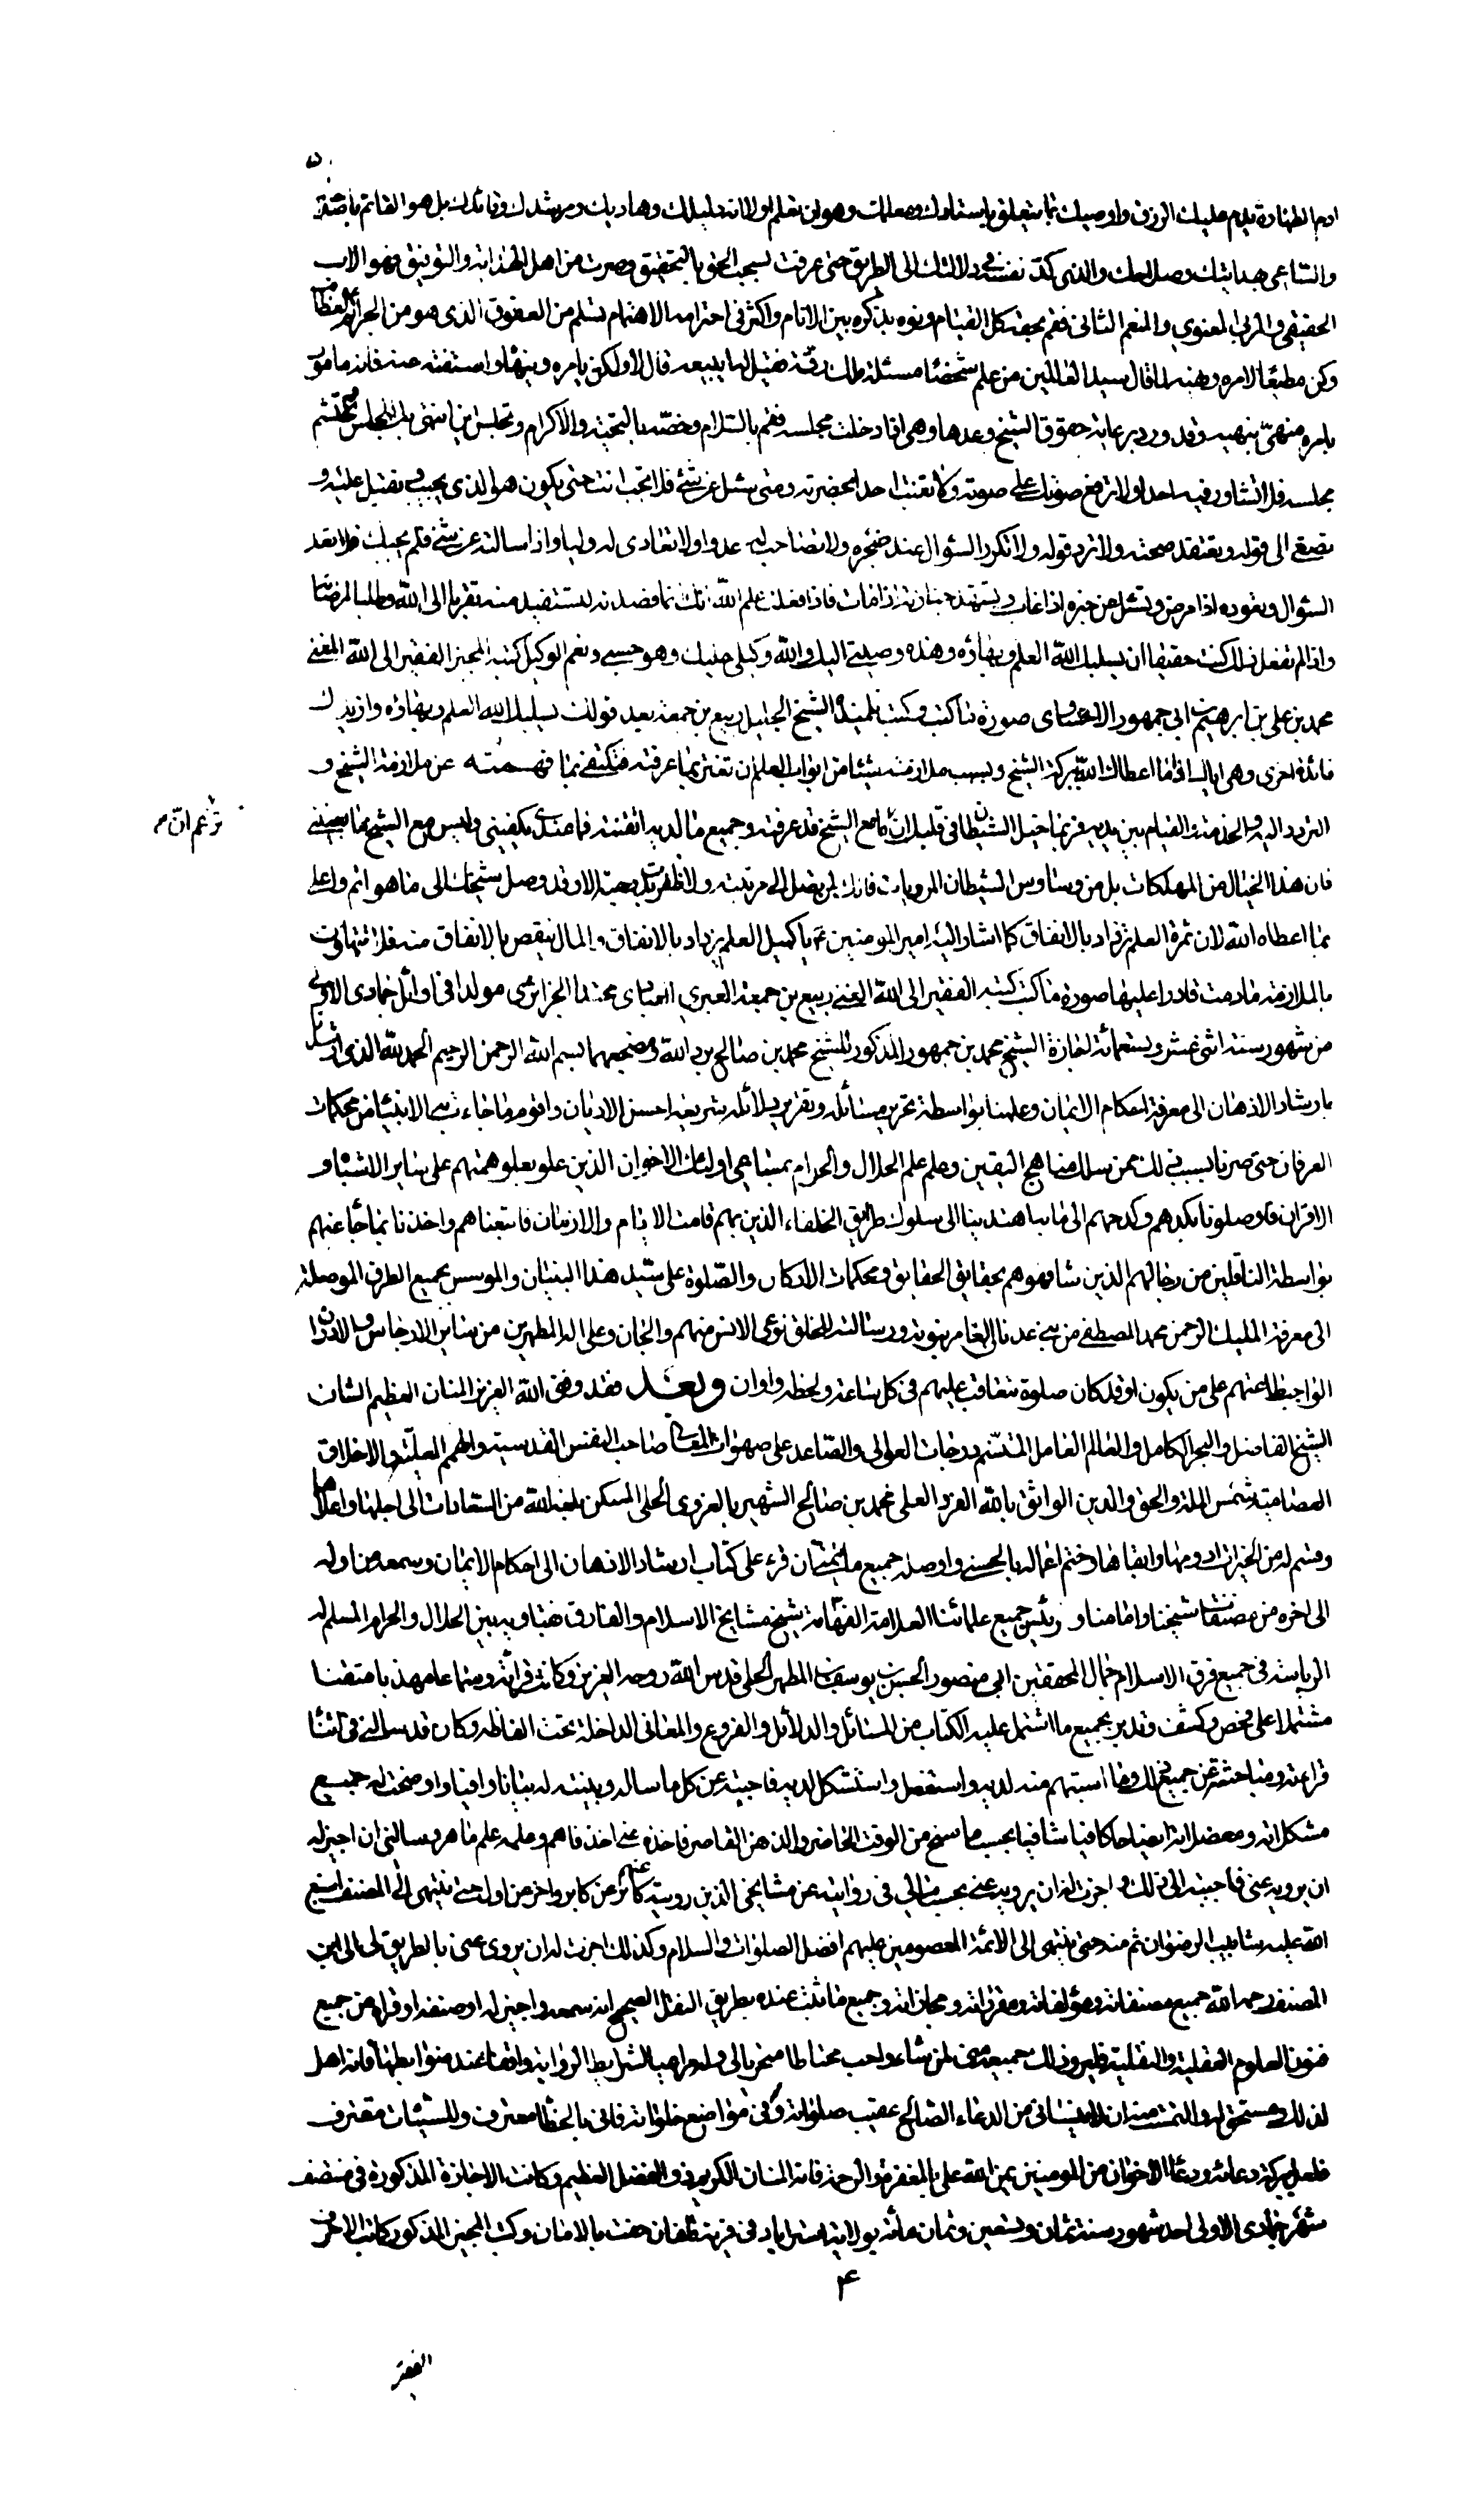 ادم الطهارة يدم عليك الرزق واوصيك بما يتعلق باستادك ومعلمك وهو ان تعلم اولا انه دليلك وهاديك ومرشدك وقائدك بل هو القائم باصلاحك
والساعي هدايتك وصل الحق والذي كد نفسه في دلالتك الى الطريق حتى عرفت بسببه الحق بالتحقيق وصرت من اهل الهداية والتوفيق فهو الاب
الحقيقي والرب المعنوي والمنعم الثاني فقم بحقه كل القيام ونوه بذكره بين الانام واكثر في احترامه الاهتمام لتسلم من العقوق الذي هو من الجرائم العظام
وكن مطيعا لامره ونهيه لما قال سيد العالمين من علم شخصا مسئلة ملك رقه فقيل له ايبيعه قال لا ولكن يامره وينهاه واستفته عنه فانه مامور
بامره منهي بنهيه وقد ورد برعاية حقوق الشيخ وعدها وهي اذا دخلت مجلسه فقم بالسلام وخصه بالتحية والاكرام وتجلس اين انتهى بك المجلس وتحتشم
مجلسه فلا تشاور فيه احدا ولا ترفع صوتك على صوته ولا تغتب احدا بحضرته ومتى سئل عن شيء فلا تجب انت حتى يكون هو الذي يجيب وتقبل عليه و
تصغي الى قوله وتعتقد صحته ولا ترد قوله ولا تكرر السؤال عند ضجره ولا تصاحب له عدوا ولا تعادي له وليا واذا سالته عن شيء فلم يجبك فلا تعد
السؤال وتعوده اذا مرض وتسئل عن خبره اذا غاب وتشهد جنازته اذا مات فاذا فعلت علم الله انك انما قصدته لتستفيد منه تقربا الى الله وطلبا لمرضاته
واذا لم تفعل ذلك كنت حقيقا ان يسلبك الله العلم وبهاؤه وهذه وصيتي اليك والله وكيلي عليك وهو حسبي ونعم الوكيل كتبه المجيز الفقير الى الله الغني
محمد بن علي بن ابرهيم بن ابي جمهور الاحساوي صورة ما كتب وكتب تلميذه الشيخ الجليل ربيع بن جمعة بعد قولك يسلبك الله العلم وبهاؤه وازيدك
فائدة اخرى وهي اياك اذا ما اعطاك الله ببركة الشيخ وبسبب ملازمته شيئا من ابواب العلم ان تغتر بما عرفته فتكتفي بما فهمته عن ملازمة الشيخ و
التردد اليه والخدمة والقيام بين يديه فربما خيل الشيطان في قلبك ان ما مع الشيخ قد عرفته وجميع ما لديه اتقنته فما عندي يكفيني وليس مع الشيخ بما يعنيني
تزعم ان
فان هذا الخيال من المهلكات بل من وساوس الشيطان المرديات فانك لن تصل الى مرتبته ولا ظفرت بدرجته الا وقد وصل شيخك الى ما هو اتم واعلى
مما اعطاه الله لان ثمرة العلم تزداد بالانفاق كما اشار اليه امير المومنين ع يا كميل العلم يزداد بالانفاق والمال ينقص بالانفاق منه فلا تتهاون
بالملازمة ما دمت قادرا عليها صورة ما كتب كتبه الفقير الى الله الغني ربيع بن جمعة العبري العبادي محتدا الجزائري مولدا في اوائل جمادى الاولى
من شهور سنة اثنى عشر وتسعمائة اجازة الشيخ محمد بن جمهور المذكور للشيخ محمد بن صالح برد الله مضجعهما بسم الله الرحمن الرحيم الحمد لله الذي ارشدنا
بارشاد الاذهان الى معرفة احكام الايمان وعلمنا بواسطة تحرير مسائله وتقرير دلائله شريعة احسن الاديان واقوم ما جاءت به الانبياء من محكمات
العرفان حتى صرنا بسبب ذلك ممن سلك مناهج اليقين وعلم علم الحلال والحرام بمساعي اولئك الاخوان الذين علو بعلو همتهم على سائر الاشباه و
الاقران فاوصلونا بكدهم وكدحهم الى ما به اهتدينا الى سلوك طرائق الخلفاء الذين بهم قامت الايام والازمان فاتبعناهم واخذنا بما جاء عنهم
بواسطة الناقلين من رجالهم الذين شافهوهم بحقايق الحقايق ومحكمات الاركان والصلوة على سيد هذا البنيان والموسس بجميع الطرق الموصلة
الى معرفة الملك الرحمن محمد المصطفى من بني عدنان العامر بنبوته ورسالته للخلق نوعي الانس منهم والجان وعلى اله المطهرين من سائر الارجاس والادران
الواجب طاعتهم على من يكون او قد كان صلوة تتعاقب عليهم في كل ساعة ولحظة واوان وبعد فقد وفق الله العزيز المنان العظيم الشان
الشيخ الفاضل والبحر الكامل والعالم العامل المتسنم بدرجات العوالي والصاعد على صهوات المعالي صاحب النفس القدسية والهمم العلية والاخلاق
العصامية شمس الملة والحق والدين الواثق بالله الفرد العلي محمد بن صالح الشهير بالغروي الحلي المسكن بلغه الله من السعادات الى اجلها واعلاها
وقسم له من الخيرات ادومها وابقاها وختم اعماله بالحسنى واوصله جميع ما يتمنى ان قرء على كتاب ارشاد الاذهان الى احكام الايمان وسمعه من اوله
الى اخره من مصنفات شيخنا وامامنا ورئيس جميع علمائنا العلامة الفهامة شيخ مشايخ الاسلام والفارق بفتاويه بين الحلال والحرام المسلم له
الرياسة في جميع فرق الاسلام جمال المحققين ابي منصور الحسن بن يوسف بن المطهر الحلي قدس الله روحه العزيز وكانت قرائته وسماعه مهذبا متقنا
مشتملا على فحص وكشف وتدبر بجميع ما اشتمل عليه الكتاب من المسائل والدلائل والفروع والمعاني الداخلة تحت الفاظه وكان قد سالني في اثناء
قراءته ومباحثته عن جميع ذلك وما استبهم منه لديه واستفصل واستشكل لديه فاجبته عن كل ما ساله وبينته له بيانا وافيا واوضحت له جميع
مشكلاته ومعضلاته ايضاحا كافيا شافيا بحسب ما سنح من الوقت الحاضر والذهن القاصر فاخذه عني اخذ فاهم وعلمه علم ماهر وسالني ان اجيز له
ان يرويه عني فاجبته الى ذلك واجزت له ان يرويه عني بحسب مالي في روايته عن مشايخي الذين رويته عنهم كابرا عن كابر واخر عن اول حتى ينتهي الى المصنف اسبغ
الله عليه شابيب الرضوان ثم منه حتى ينتهي الى الائمة المعصومين عليهم افضل الصلوات والسلام وكذلك اجزت له ان يروي عني بالطريق لي الى ابن
المصنف رحمه الله جميع مصنفاته ومؤلفاته ومقرواته ومجازاته وجميع ما ثبت عنده بطريق النقل الصحيح انه سمعه واجيز له او صنفه او قراه من جميع
فنون العلوم العقلية والنقلية فليرو ذلك جميعه عني لمن شاء واحب محتاطا متحريا لي وله مراعيا لشرايط الرواية واقفا عند ضوابطها فانه اهل
لذلك ومستحق له والتمست منه ان لا ينساني من الدعاء الصالح عقيب صلواته وفي مواضع خلواته فاني بالخطا معترف وللسيئات مقترف
فلعل ببركة دعائه ودعاء الاخوان من المومنين يمن الله علي بالمغفرة والرحمة فانه المنان الكريم ذو الفضل العظيم وكانت الاجازة المذكورة في منتصف
شهر جمادى الاولى احد شهور سنة ثمان وتسعين وثمان مائة بولاية استراباد في قرية قلفان حفت بالامان وكتب المجيز المذكور كاتب الاحرف
٤
الفقير